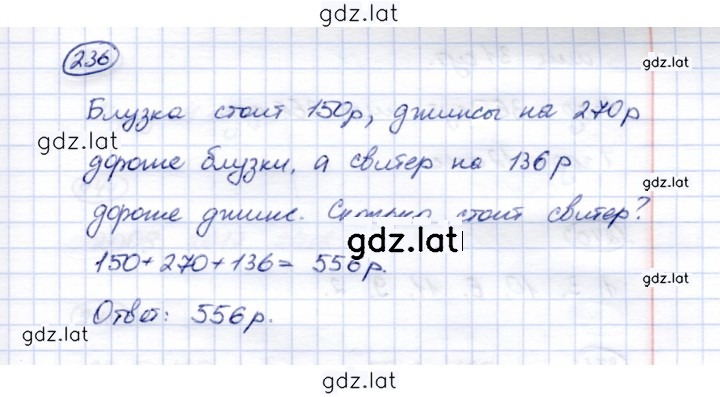 gdz.lat
236
gdz.lat
Блузка стоит 150р, джинсы на 270р
gdz.lat
дороже блузки, а свитер на 136р
gdz.lat
дороже джинс. стоит свитер?
gdz.lat
150+270+136= 556р.
gdz.lat
Ответ: 556р.
gdz.lat
gdz.lat
gdz.lat